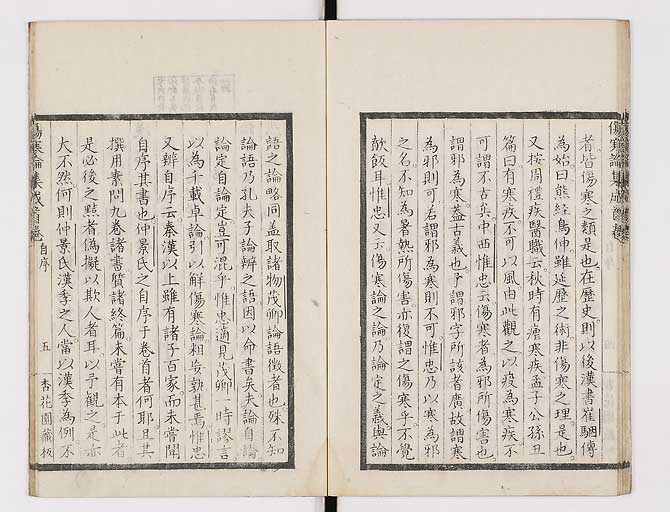 者皆傷寒之類是也在歷史則以後漢書崔駰傳
為始曰熊經鳥伸雖延歷之術非傷寒之理是也
又按周禮疾醫職云秋時有瘧寒疾孟子公孫丑
篇曰有寒疾不可以風由此觀之以疫為寒疾不
可謂不古矣中西惟忠云傷寒者為邪所傷害也
謂邪為寒蓋古義也予謂邪字所該者廣故謂寒
為邪則可右謂邪為寒則不可惟忠乃以寒為邪
之名不知為暑熱所傷害亦復謂之傷寒乎不覺
歕飯耳惟忠又云傷寒論之論乃論定之義與論
語之論略同蓋取諸物茂卿論語徵者也殊不知
論語乃孔夫子論辨之語因以命書矣夫論自論
論定自論定豈可混乎惟忠適見茂卿一時謬言
以為千載卓論引以解傷寒論粗妄孰甚焉惟忠
又辨自序云秦漢以上雖有諸子百家而未嘗聞
自序其書也仲景氏之自序于卷首者何耶且其
撰用素問九卷諸書質諸終篇未嘗有本于此者
是必後之黠者偽擬以欺人者耳以予觀之是亦
大不然何則仲景氏漢季之人當以漢季為例不
傷寒論集成首卷 自序 五 杏花園藏板